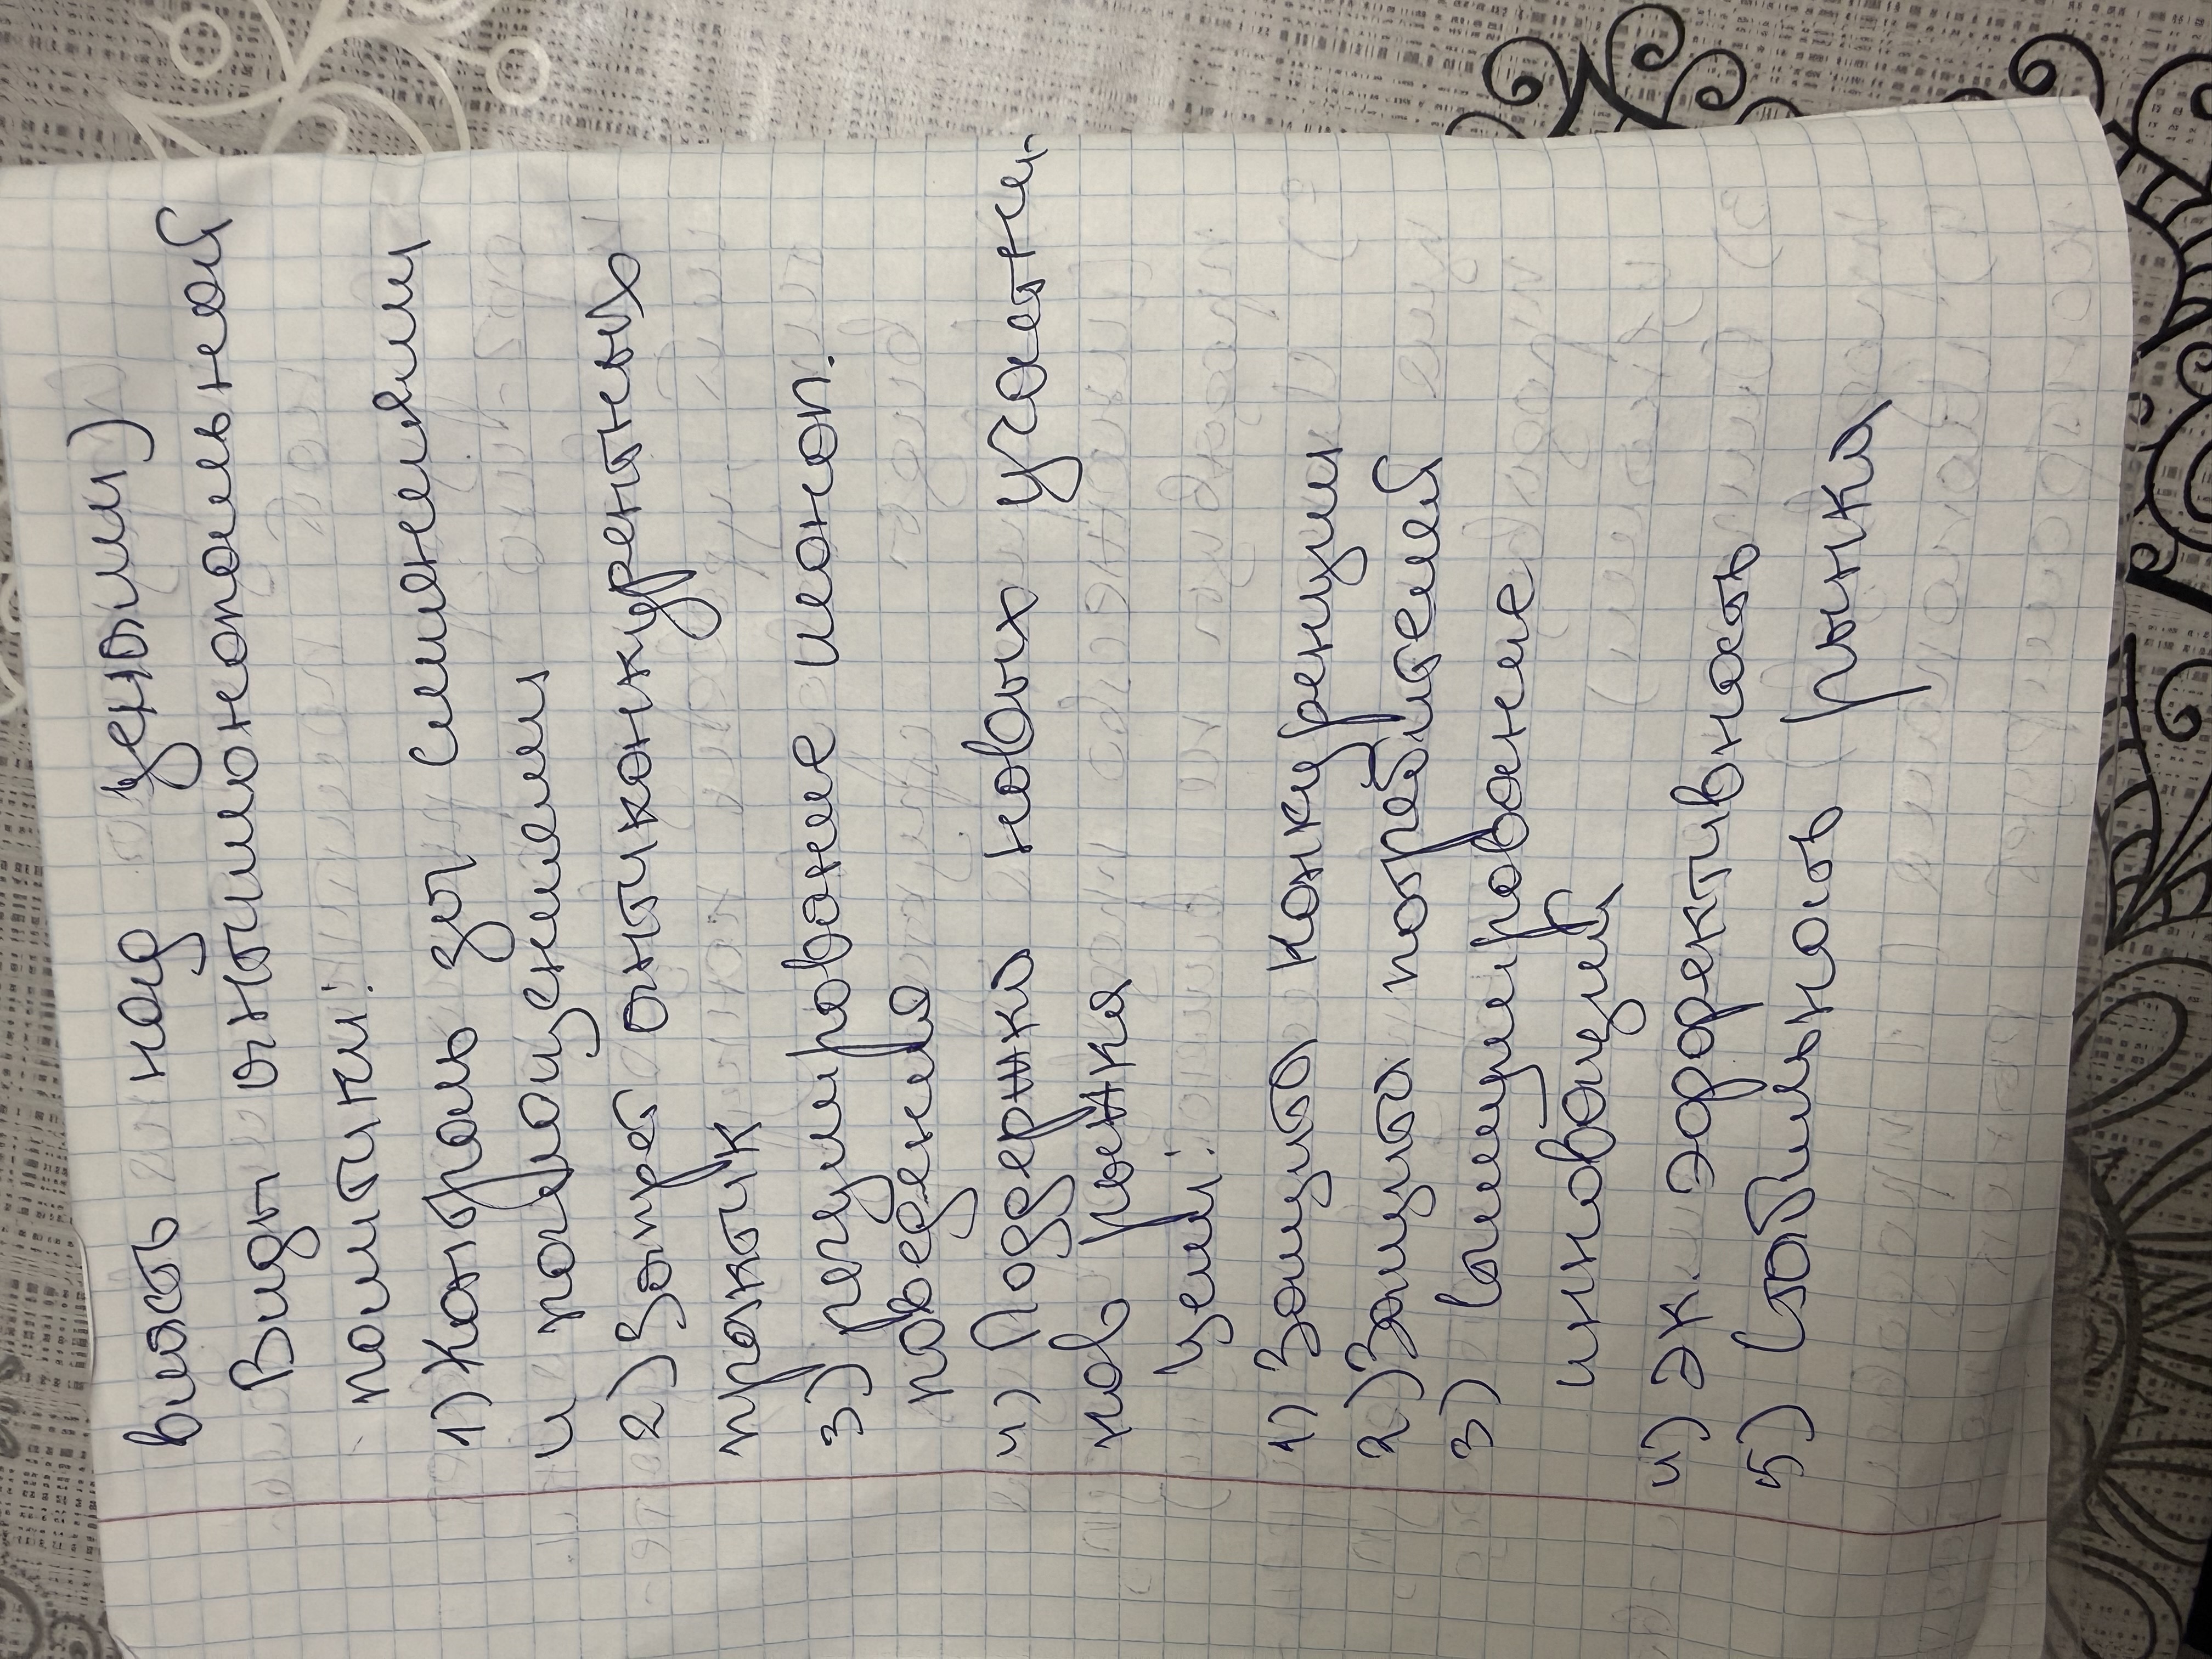 власть над ценами)
Виды антимонопольной
политики:
1) Контроль за слияниями
и поглощениями
2) Запрет антиконкурентных
практик
3) регулирование монопол.
поведения
4) Поддержка новых участни-
ков рынка
цели:
1) Защита конкуренции
2) Защита потребителей
3) Стимулирование
инноваций
4) эк. эффективность
5) Стабильность рынка